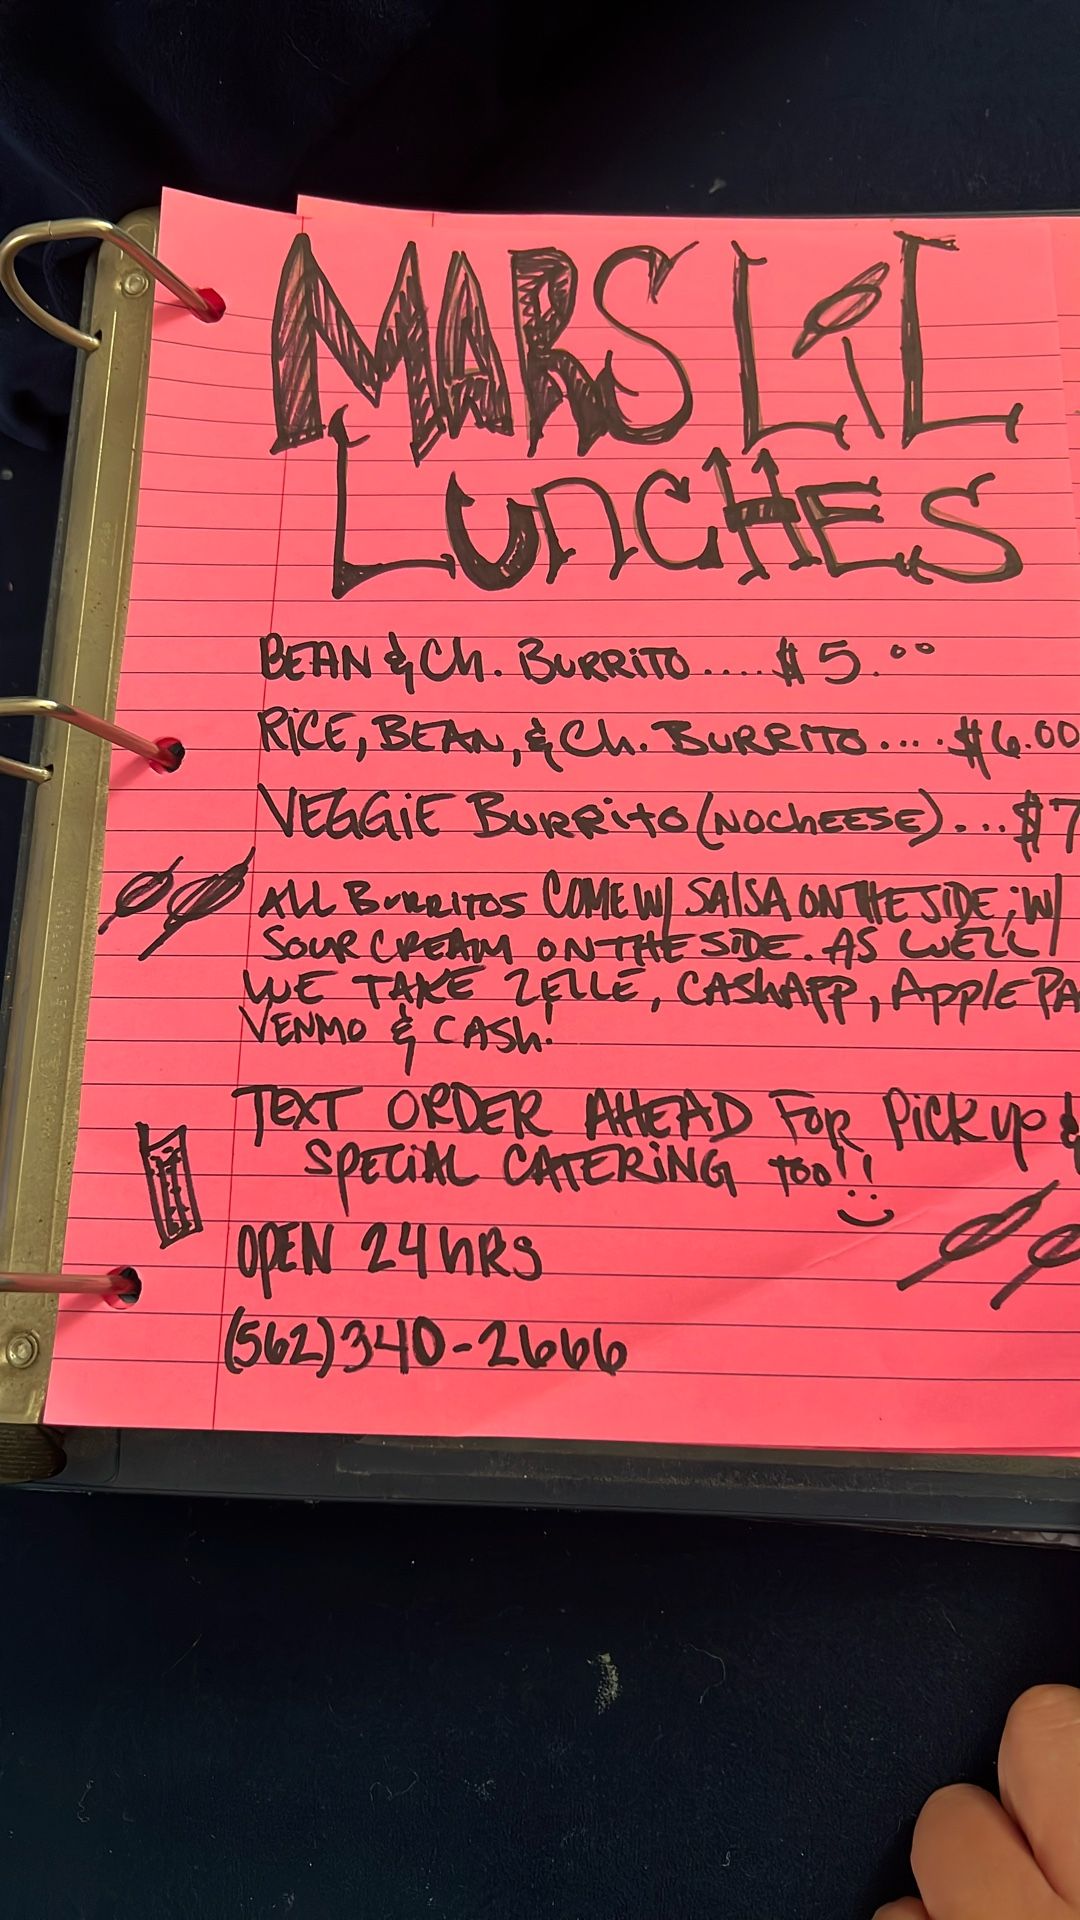 MARS LiL
LUNCHES
BEAN & Ch. BURRITO.....$5.00
RiCE, BEAN, & Ch. BURRITO....$6.00
VEGGiE BURRito (NO CHEESE)....$7
ALL BURRITOS COME W/ SALSA ON THE SIDE; W/
SOUR CREAM ON THE SIDE. AS WELL
WE TAKE ZELLE, CASHAPP, Apple PA
VENMO & CASH!
TEXT ORDER AHEAD FOR PiCK UP &
SPECiAL CATERiNG TOO!!
OPEN 24 HRS
(562) 340-2666